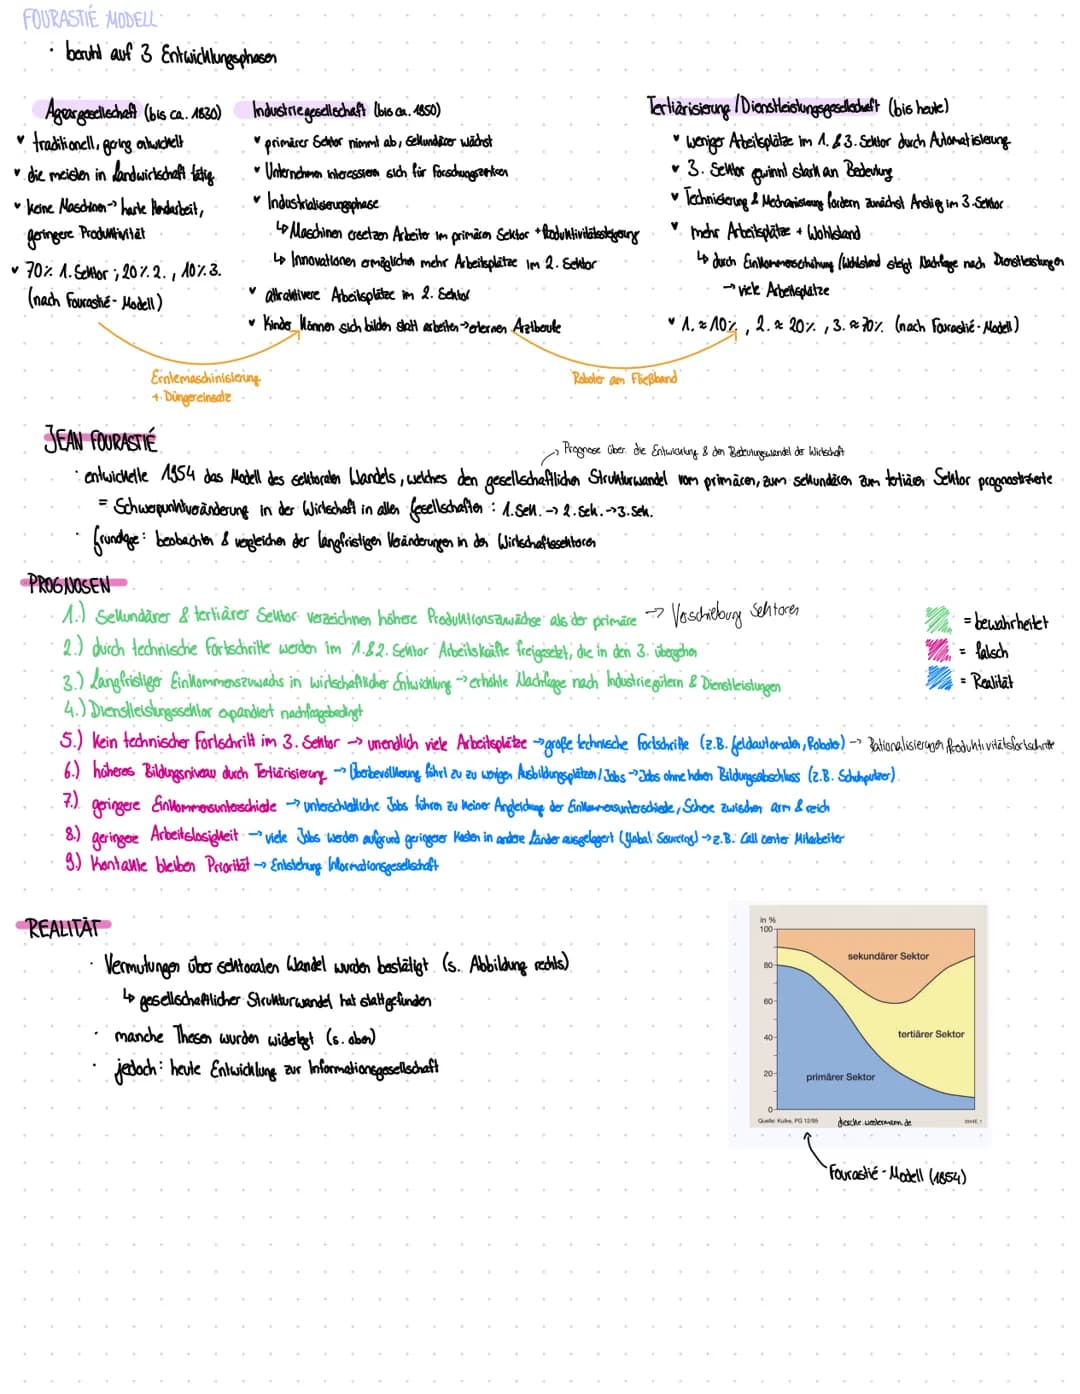 FOURASTIÉ MODELL
· beruht auf 3 Entwicklungsphasen
Agrargesellschaft (bis ca. 1820)
traditionell, gering entwickelt
die meisten in Landwirtschaft tätig
keine Maschinen → harte Handarbeit,
geringere Produktivität
70% 1. Sektor ; 20% 2. , 10% 3.
(nach Fourastié-Modell)
Industriegesellschaft (bis ca. 1850)
primärer Sektor nimmt ab, sekundärer wächst
Unternehmen interessieren sich für
Industrialisierungsphase
↳ Maschinen ersetzen Arbeiter im primären Sektor + Produktivitätssteigerung
↳ Innovationen ermöglichen mehr Arbeitsplätze im 2. Sektor
attraktivere Arbeitsplätze im 2. Sektor
Kinder können sich bilden statt arbeiten → erlernen Arztberufe
Tertiärisierung / Dienstleistungsgesellschaft (bis heute)
weniger Arbeitsplätze im 1. & 3. Sektor durch Automatisierung
3. Sektor gewinnt stark an Bedeutung
Technisierung & Mechanisierung fordern zunächst Anstieg im 3. Sektor
mehr Arbeitsplätze + Wohlstand
↳ durch Einkommenserhöhung / Wohlstand steigt Nachfrage nach Dienstleistungen
→ viele Arbeitsplätze
1. ≈ 10% , 2. ≈ 20% , 3. ≈ 70% (nach Fourastié-Modell)
Erntemaschinisierung
+ Düngereinsatz
Roboter am Fließband
JEAN FOURASTIÉ
→ Prognose über die Entwicklung & den Bedeutungswandel der Wirtschaft
· entwickelte 1954 das Modell des sektoralen Wandels, welches den gesellschaftlichen Strukturwandel vom primären, zum sekundären zum tertiären Sektor prognostizierte
= Schwerpunktveränderung in der Wirtschaft in allen Gesellschaften : 1. Sek. → 2. Sek. → 3. Sek.
· Grundlage : beobachten & vergleichen der langfristigen Veränderungen in den Wirtschaftssektoren
PROGNOSEN
1.) Sekundärer & tertiärer Sektor verzeichnen höhere Produktionszuwächse als der primäre → Verschiebung Sektoren
2.) durch technische Fortschritte werden im 1. & 2. Sektor Arbeitskräfte freigesetzt, die in den 3. übergehen
3.) Langfristiger Einkommenszuwachs in wirtschaftlicher Entwicklung → erhöhte Nachfrage nach Industriegütern & Dienstleistungen
4.) Dienstleistungssektor expandiert nachfragebedingt
5.) Kein technischer Fortschritt im 3. Sektor → unendlich viele Arbeitsplätze → große technische Fortschritte (z.B. Geldautomaten, Roboter) → Rationalisierungen Produktivitätsfortschritte
6.) höheres Bildungsniveau durch Tertiärisierung → Überbevölkerung führt zu zu wenigen Ausbildungsplätzen / Jobs → Jobs ohne hohen Bildungsabschluss (z.B. Schuhputzer)
7.) geringere Einkommensunterschiede → unterschiedliche Jobs führen zu keiner Angleichung der Einkommensunterschiede, Schere zwischen arm & reich
8.) geringere Arbeitslosigkeit → viele Jobs werden aufgrund geringerer Kosten in andere Länder ausgelagert (Global Sourcing) → z.B. Call center Mitarbeiter
9.) Kontakte bleiben Priorität → Entstehung Informationsgesellschaft
= bewahrheitet
= falsch
= Realität
REALITÄT
· Vermutungen über sektoralen Wandel wurden bestätigt (s. Abbildung rechts)
↳ gesellschaftlicher Strukturwandel hat stattgefunden
· manche Thesen wurden widerlegt (s. oben)
· jedoch : heute Entwicklung zur Informationsgesellschaft
in %
100
80
60
40
20
0
sekundärer Sektor
tertiärer Sektor
primärer Sektor
Quelle: Kulke, PG 12/95
diercke.westermann.de
Fourastié-Modell (1954)